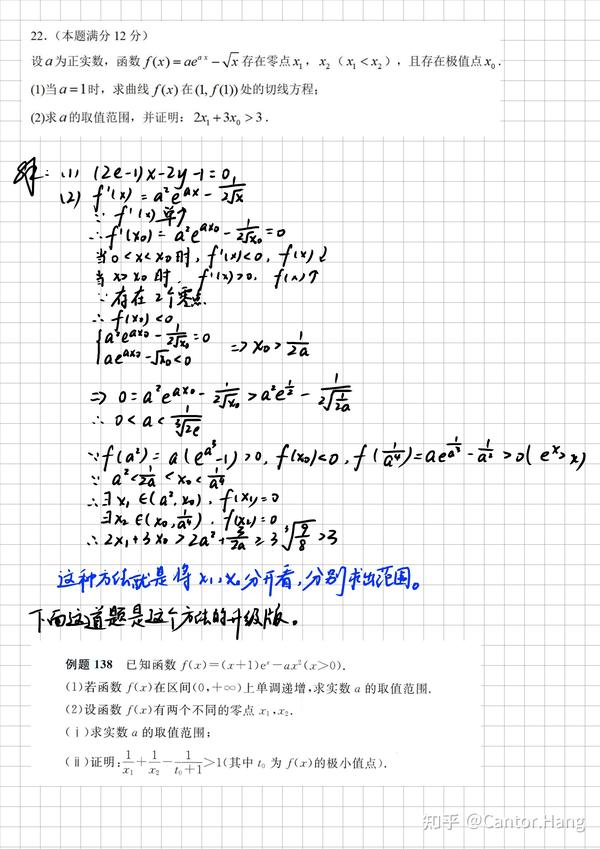 22.（本题满分 12 分）
设 a 为正实数，函数 f(x)=ae^{ax}-√x 存在零点 x₁，x₂（x₁<x₂），且存在极值点 x₀.
(1)当 a=1 时，求曲线 f(x) 在 (1, f(1)) 处的切线方程；
(2)求 a 的取值范围，并证明：2x₁+3x₀>3.
解: (1) (2e-1)x-2y-1=0
(2) f'(x)=a²e^{ax}-1/(2√x)
∵ f'(x)单↑
∴ f'(x₀)=a²e^{ax₀}-1/(2√x₀)=0
当0<x<x₀时, f'(x)<0, f(x)↓
当x>x₀时, f'(x)>0, f(x)↑
∵存在2个零点
∴ f(x₀)<0
{a²e^{ax₀}-1/(2√x₀)=0
ae^{ax₀}-√x₀<0 ⇒ x₀>1/(2a)
⇒ 0=a²e^{ax₀}-1/(2√x₀)>a²e^{1/2}-1/(2√(1/(2a)))
∴ 0<a<1/∛(2e)
∵f(a²)=a(e^{a³}-1)>0, f(x₀)<0, f(1/a⁴)=ae^{1/a³}-1/a²>0(e^x>x)
∵ a²<1/(2a)<x₀<1/a⁴
∴∃x₁∈(a²,x₀), f(x₁)=0
∃x₂∈(x₀,1/a⁴), f(x₂)=0
∴ 2x₁+3x₀>2a²+3/(2a)≥3∛(9/8)>3
这种方法就是将x₁,x₀分开看,分别求出范围。
下面这道题是这个方法的升级版。
例题 138 已知函数 f(x)=(x+1)e^x-ax²(x>0).
(1)若函数 f(x)在区间(0,+∞)上单调递增,求实数 a 的取值范围.
(2)设函数 f(x)有两个不同的零点 x₁,x₂.
(ⅰ)求实数 a 的取值范围;
(ⅱ)证明:1/x₁+1/x₂-1/(t₀+1)>1(其中 t₀ 为 f(x)的极小值点).
知乎 @Cantor.Hang